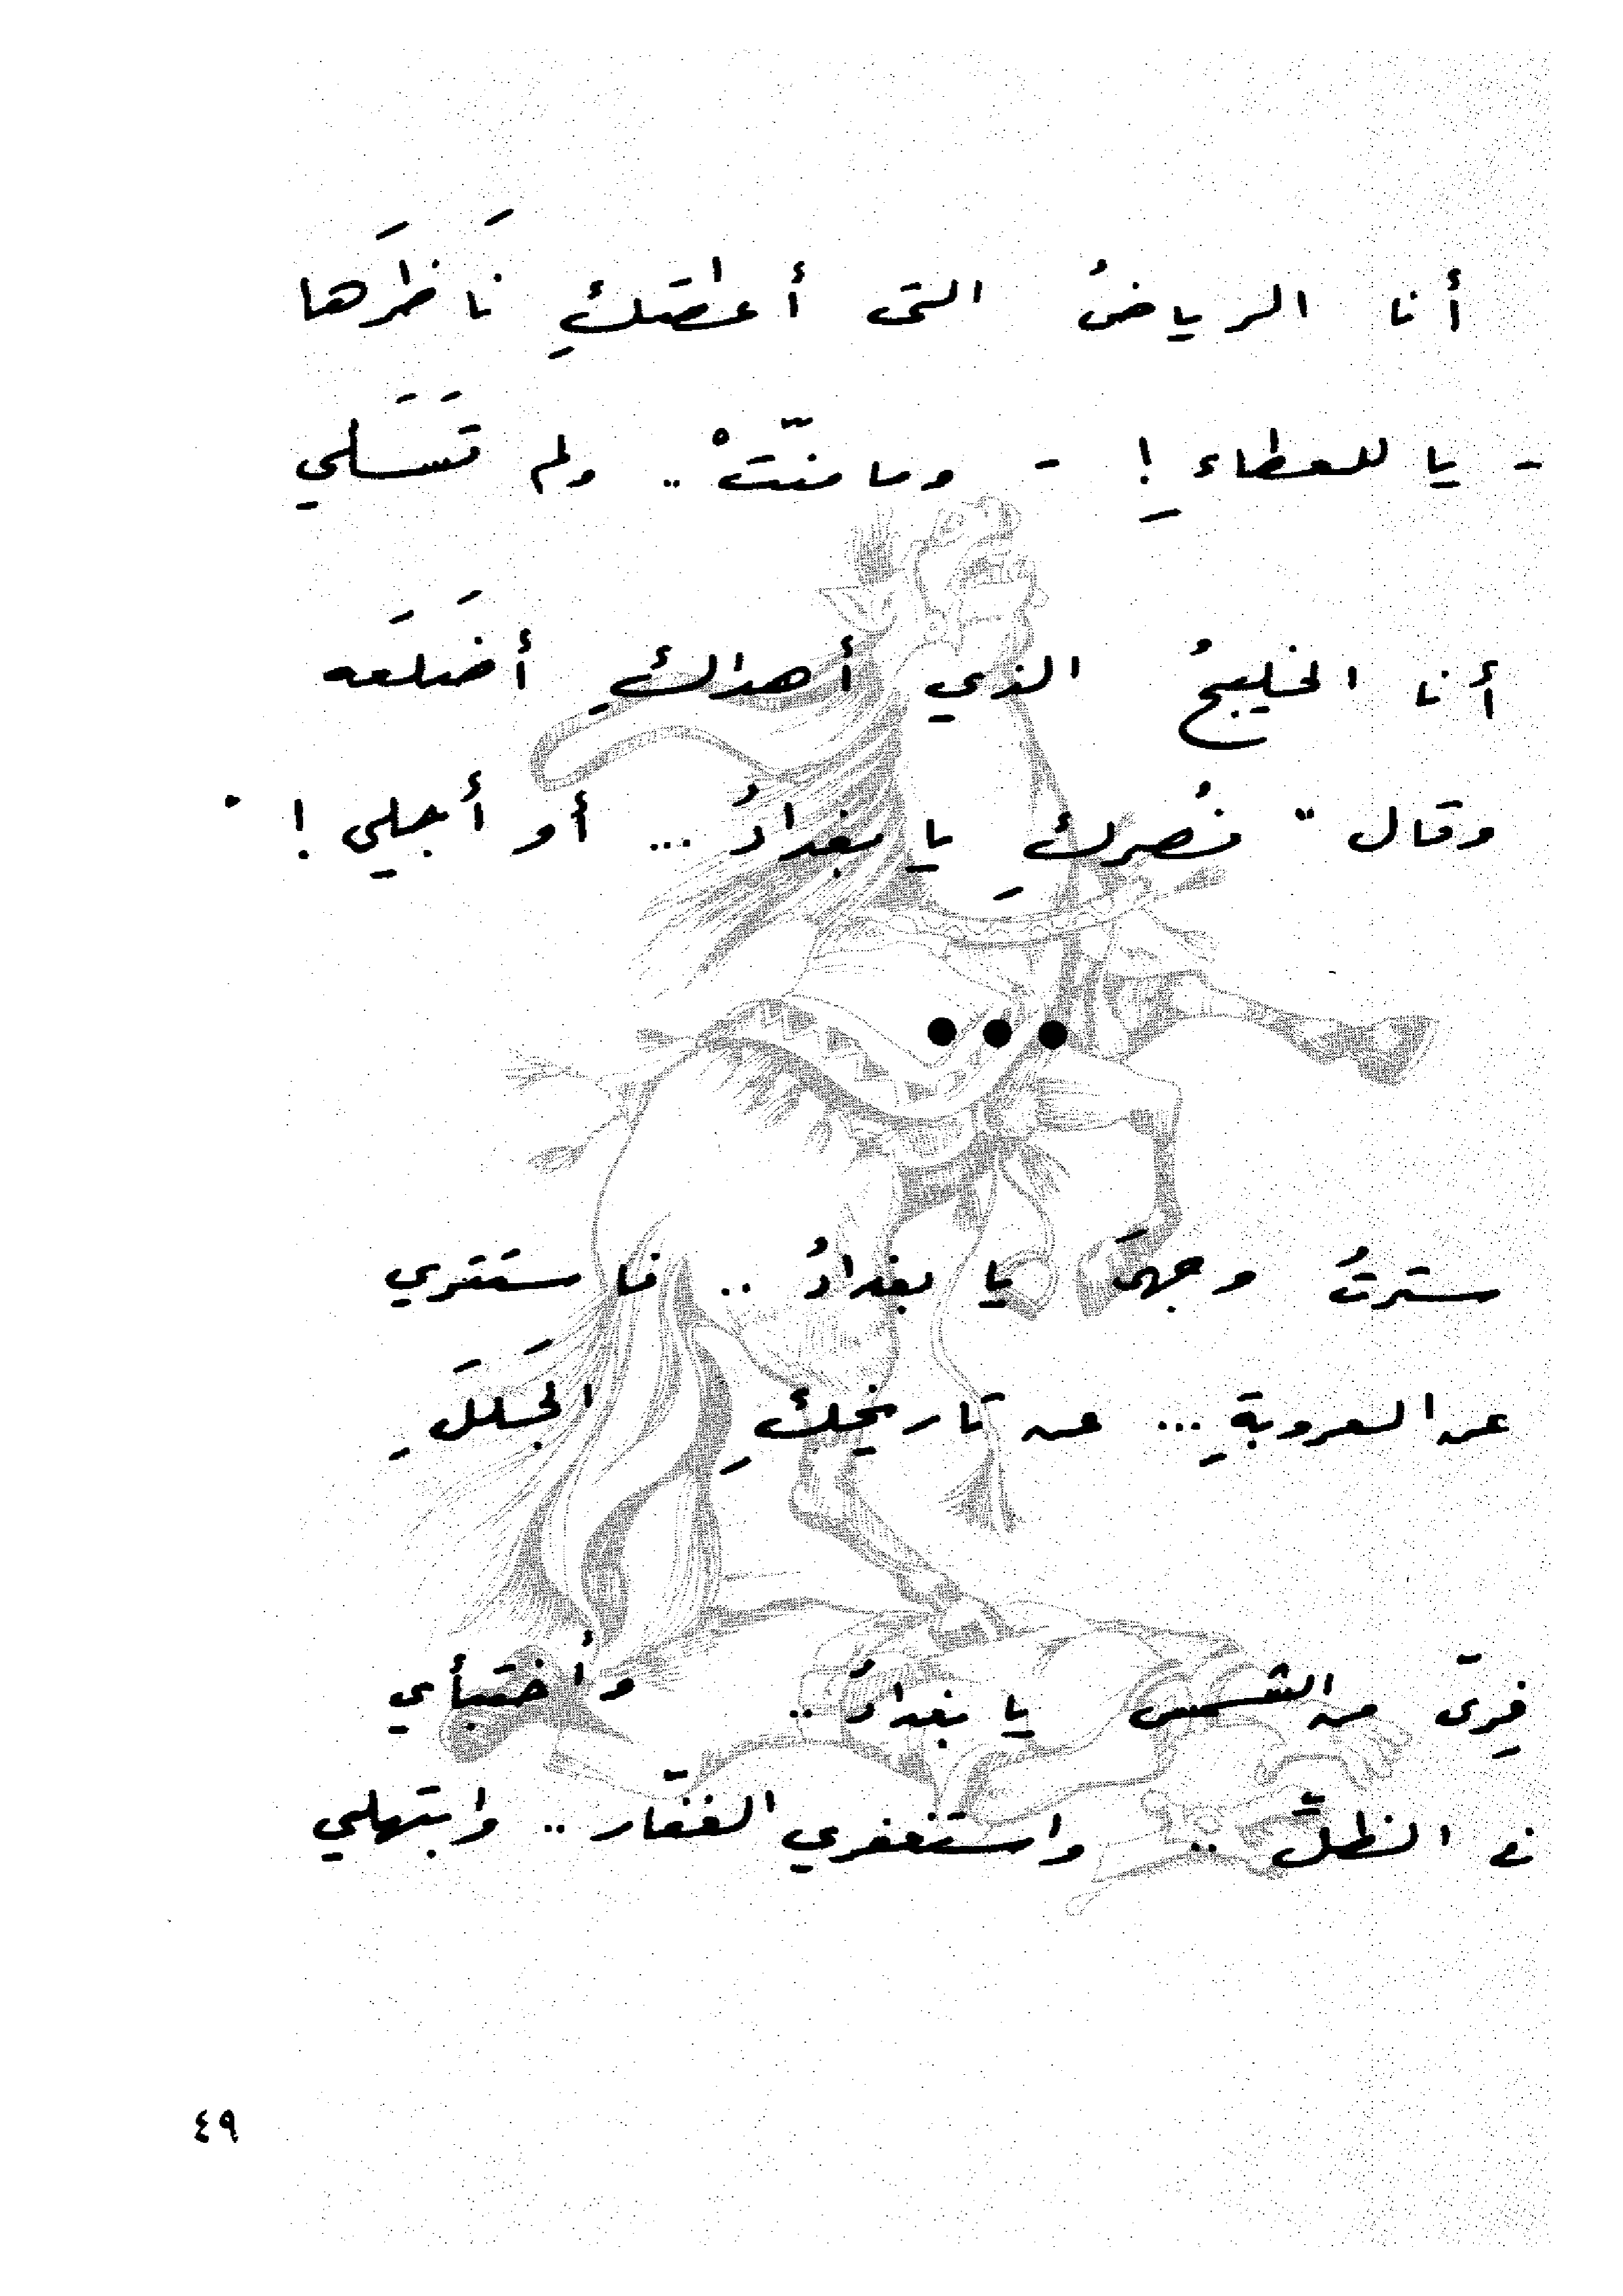 أنا الرياضُ التى أعطتكِ نَاظرَها
- يا للعطاءِ ! - وما منّتْ .. ولم تَسَلي
أنا الخليجُ الذي أهداكِ أضلَعَه
وقال " نُصركِ يا بغدادُ ... أو أجلي ! "
...
سترتُ وجهىَ يا بغدادُ .. فاستَتري
عن العروبةِ ... عن تاريخكِ الجَلَلِ
فِرّى من الشمس يا بغدادُ .. واُختبأي
في الظلّ .. واستغفري الغفّار .. وابتهلي
٤٩